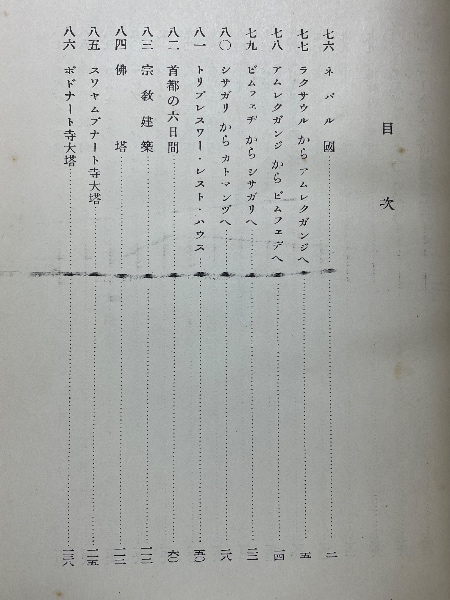 目次
七六 ネパル國 一
七七 ラクサウルからアムレクガンジへ 五
七八 アムレクガンジからビムフェヂへ 一四
七九 ビムフェヂからシサガリへ 二二
八〇 シサガリからカトマンヅへ 二八
八一 トリブレスワー・レスト・ハウス 五〇
八二 首都の六日間 六〇
八三 宗教建築
八四 佛塔
八五 スワヤムブナート寺大塔
八六 ボドナート寺大塔